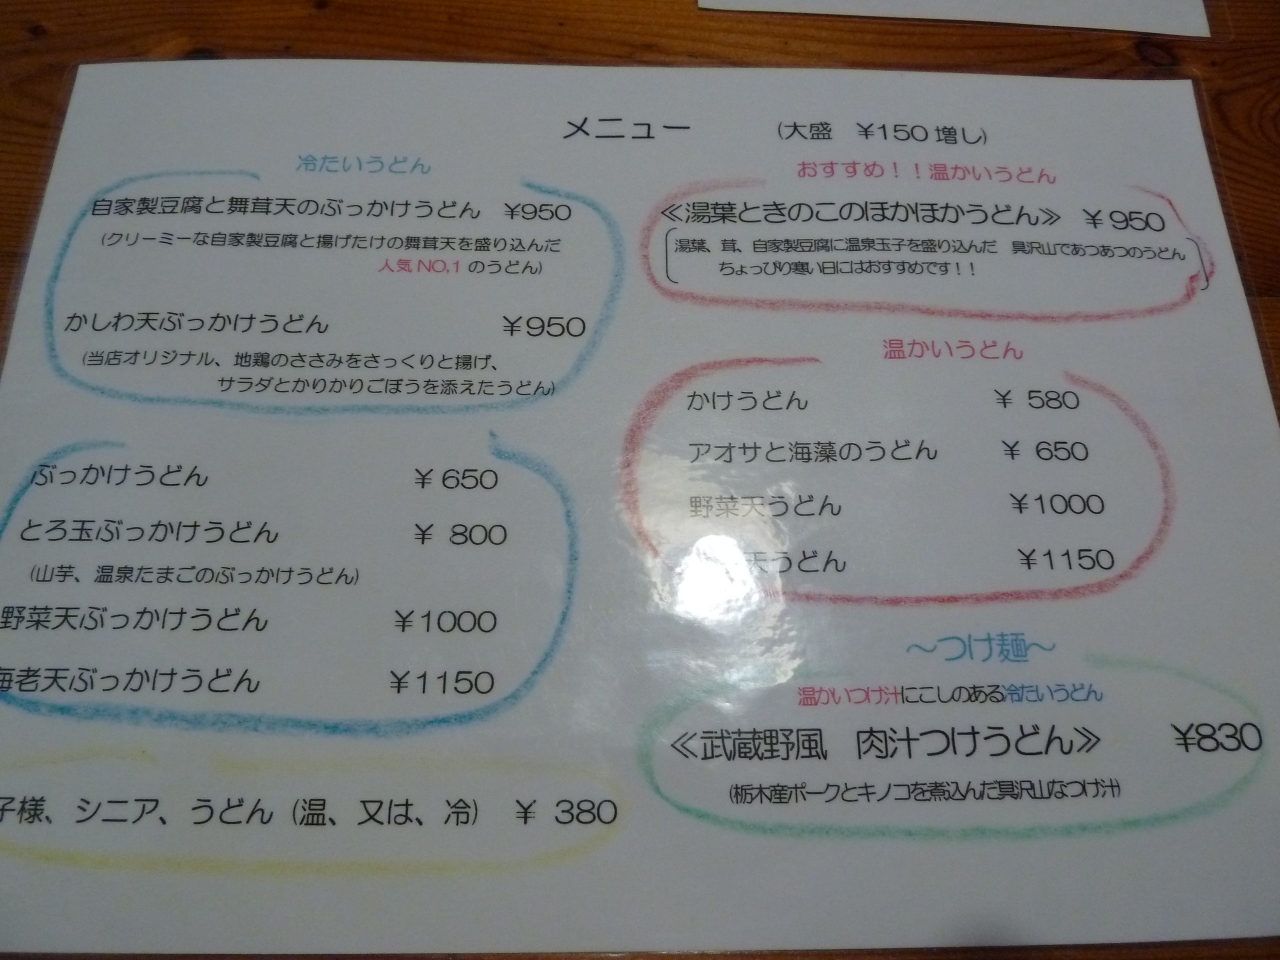 メニュー (大盛 ¥150増し)
冷たいうどん
自家製豆腐と舞茸天のぶっかけうどん ¥950
(クリーミーな自家製豆腐と揚げたけの舞茸天を盛り込んだ
人気NO,1のうどん)
かしわ天ぶっかけうどん ¥950
(当店オリジナル、地鶏のささみをさっくりと揚げ、
サラダとかりかりごぼうを添えたうどん)
ぶっかけうどん ¥650
とろ玉ぶっかけうどん ¥ 800
(山芋、温泉たまごのぶっかけうどん)
野菜天ぶっかけうどん ¥1000
海老天ぶっかけうどん ¥1150
子様、シニア、うどん (温、又は、冷) ¥ 380
おすすめ!!温かいうどん
≪湯葉ときのこのほかほかうどん≫ ¥950
湯葉、茸、自家製豆腐に温泉玉子を盛り込んだ 具沢山であつあつのうどん
ちょっぴり寒い日にはおすすめです!!
温かいうどん
かけうどん ¥ 580
アオサと海藻のうどん ¥ 650
野菜天うどん ¥1000
天うどん ¥1150
~つけ麺~
温かいつけ汁にこしのある冷たいうどん
≪武蔵野風 肉汁つけうどん≫ ¥830
(栃木産ポークとキノコを煮込んだ具沢山なつけ汁)